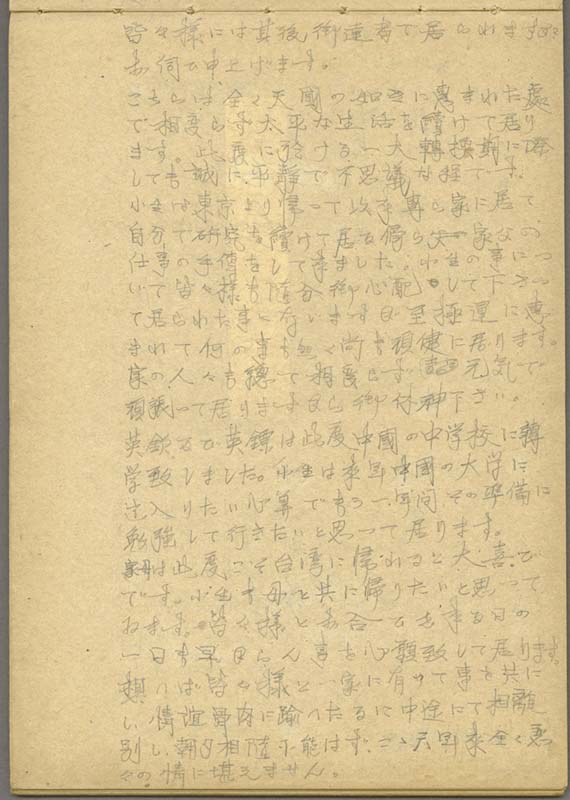 皆々様には其後御達者で居られますか
お伺ひ申上げます。
こちらは全く天國の如きに惠まれた處
で相度らず太平な生活を續けて居り
ます。此度に於ける一大轉換期に際
しても誠に平静で不思議な程です。
小生は東京より帰って以来専ら家に居て
自分の研究を續けて居る傍ら父の家の
仕事の手傳をして来ました。
て皆々様も随分御心配して下さ
居られた事と存じますが至極運に惠
まれて何の事も無く尚も頑健に居ります。
家の人々も総て相度らず元気で
頑張って居りますから御休神下さい。
英欽及び英鏢は此度中國の中学校に轉
学致しました。小生は来年中國の大学に
入りたい心算でもう一年間その準備に
勉強して行きたいと思って居ります。
家母は此度こそ台湾に帰れると大喜び
です。小生も母と共に帰りたいと思って
ゐます。皆々様とお会ひ出来る日の
一日も早からん事を心願致して居ります。
想へば皆々様と一家に有って事を共に
し情誼骨肉に踰へたるに中途にて相離
別し朝夕相陪す能はず、
々の情に堪えません。